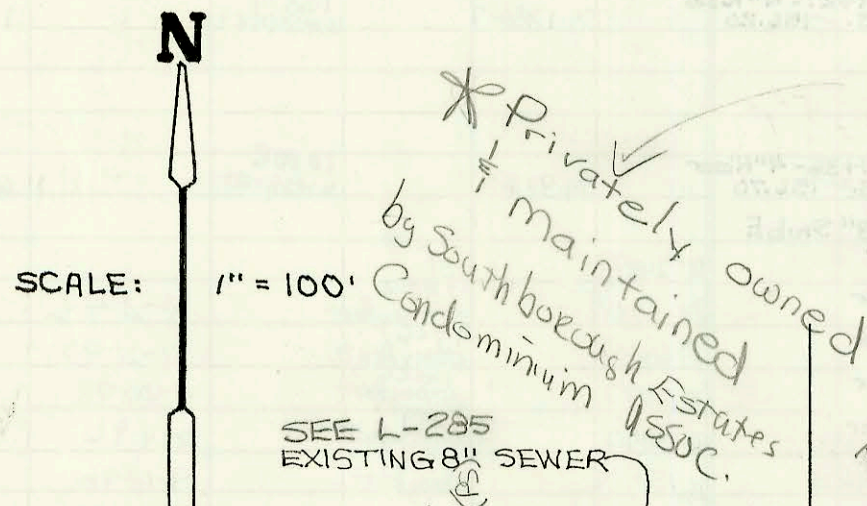 N
* Privately owned
& maintained
by Southborough Estates
Condominium Assoc.
SCALE: 1" = 100'
SEE L-285
EXISTING 8" SEWER